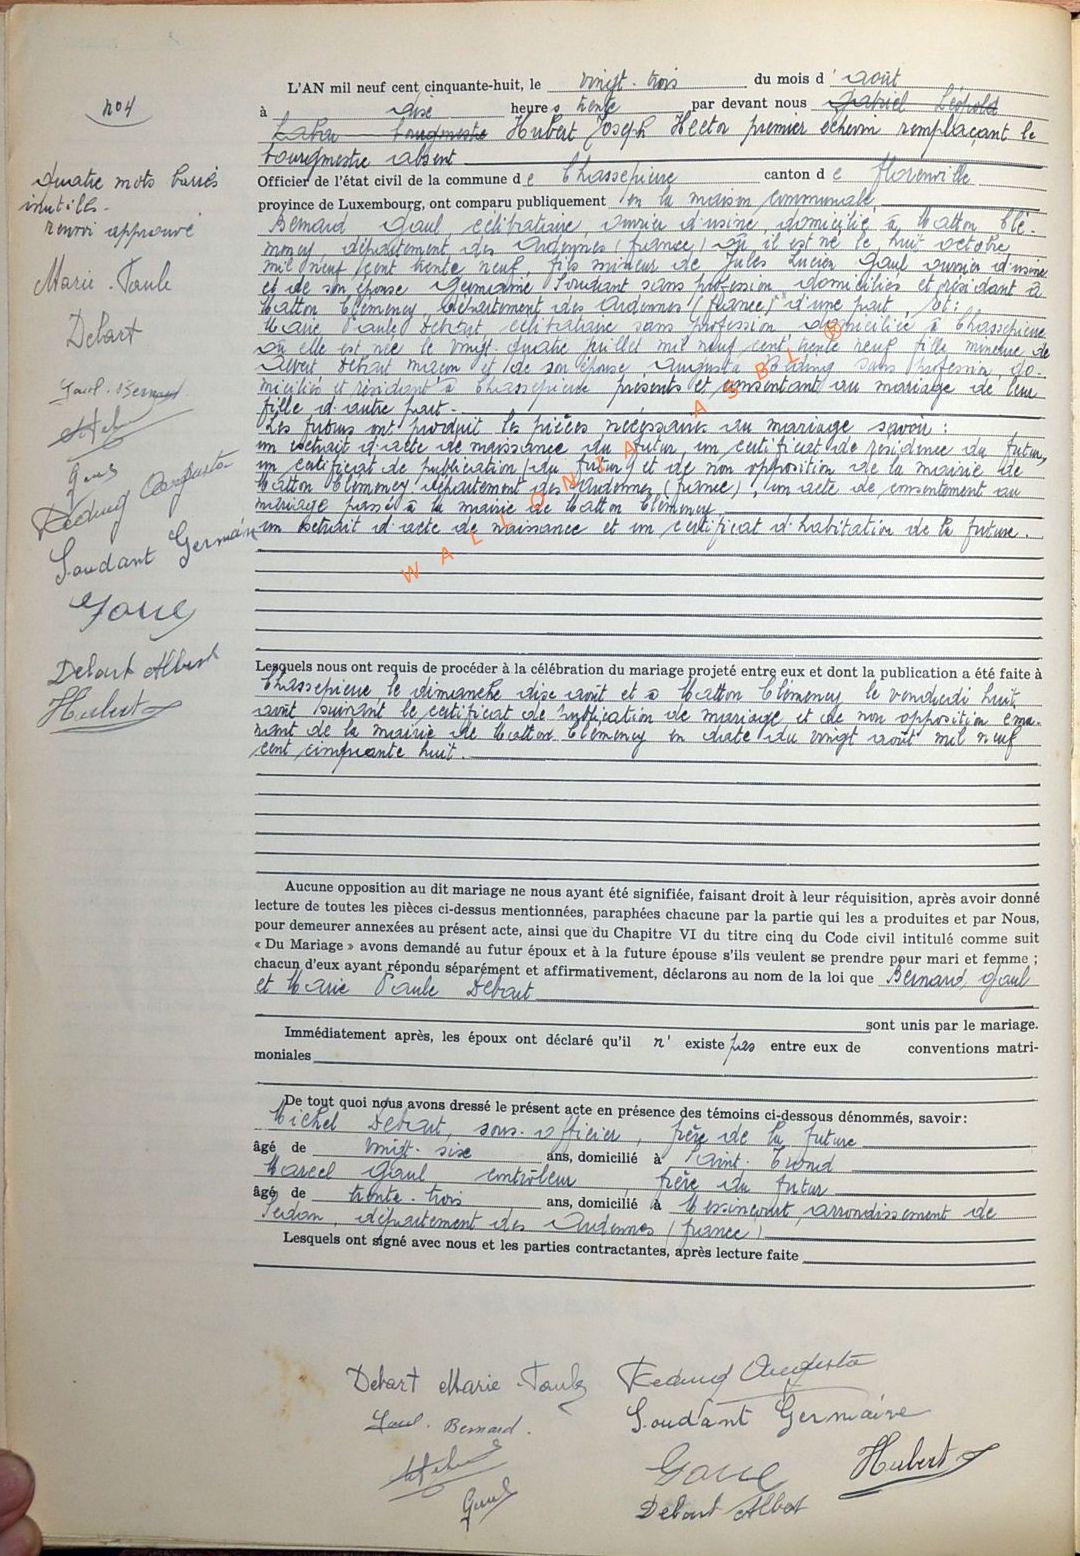 n°4
Quatre mots barrés
inutiles.
renvoi approuvé
Marie-Paule
Debart
Gaul. Bernard
Gaul
Reding Augusta
Soudant Germaine
Debart Albert
Hubert
L'AN mil neuf cent cinquante-huit, le vingt-trois du mois d'août
à dix heures trente par devant nous Gabriel Léopold
bourgmestre Hubert Joseph Hector premier échevin remplaçant le
bourgmestre absent
Officier de l'état civil de la commune de Chassepierre canton de Florenville
province de Luxembourg, ont comparu publiquement en la maison communale,
Bernard Gaul, célibataire, ouvrier d'usine, domicilié à Matton Clé-
mency département des Ardennes (france) où il est né le huit octobre
mil neuf cent trente neuf, fils mineur de Jules Lucien Gaul ouvrier d'usine
et de son épouse Germaine Soudant sans profession, domiciliés et résidant à
Matton Clémency, département des Ardennes (france) d'une part, Et :
Marie Paule Debart, célibataire sans profession, domiciliée à Chassepierre
où elle est née le vingt-quatre juillet mil neuf cent trente neuf fille mineure de
Albert Debart maçon et de son épouse, Augusta Reding sans profession, do-
miciliés et résidant à Chassepierre présents et consentant au mariage de leur
fille d'autre part.
Les futurs ont produit les pièces nécessaires au mariage savoir :
un extrait d'acte de naissance du futur, un certificat de résidence du futur,
un certificat de publication (du futur) et de non opposition de la mairie de
Matton Clémency département des Ardennes (france), un acte de consentement au
mariage passé à la mairie de Matton Clémency,
un extrait d'acte de naissance et un certificat d'habitation de la future.
WALLONIA ASBL ®
Lesquels nous ont requis de procéder à la célébration du mariage projeté entre eux et dont la publication a été faite à
Chassepierre le dimanche dix août et à Matton Clémency le vendredi huit
août suivant le certificat de publication de mariage et de non opposition éma-
nant de la mairie de Matton Clémency en date du vingt août mil neuf
cent cinquante huit.
Aucune opposition au dit mariage ne nous ayant été signifiée, faisant droit à leur réquisition, après avoir donné
lecture de toutes les pièces ci-dessus mentionnées, paraphées chacune par la partie qui les a produites et par Nous,
pour demeurer annexées au présent acte, ainsi que du Chapitre VI du titre cinq du Code civil intitulé comme suit
« Du Mariage » avons demandé au futur époux et à la future épouse s'ils veulent se prendre pour mari et femme ;
chacun d'eux ayant répondu séparément et affirmativement, déclarons au nom de la loi que Bernard Gaul
et Marie Paule Debart
sont unis par le mariage.
Immédiatement après, les époux ont déclaré qu'il n'existe pas entre eux de conventions matri-
moniales
De tout quoi nous avons dressé le présent acte en présence des témoins ci-dessous dénommés, savoir :
Michel Debart, sous-officier, frère de la future
âgé de vingt-six ans, domicilié à Saint-Trond
Marcel Gaul contrôleur, frère du futur
âgé de trente-trois ans, domicilié à Messincourt, arrondissement de
Sedan, département des Ardennes (france)
Lesquels ont signé avec nous et les parties contractantes, après lecture faite
Debart Marie-Paule
Reding Augusta
Gaul. Bernard.
Soudant Germaine
Gaul
Debart Albert
Hubert